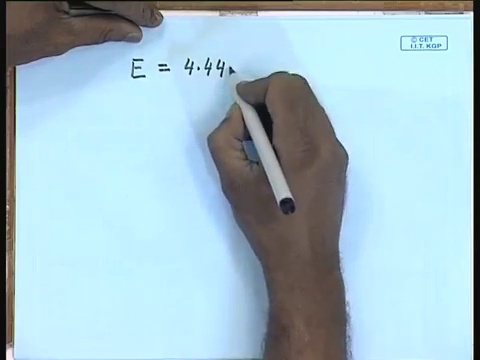 © CET
I.I.T. KGP
E = 4.44